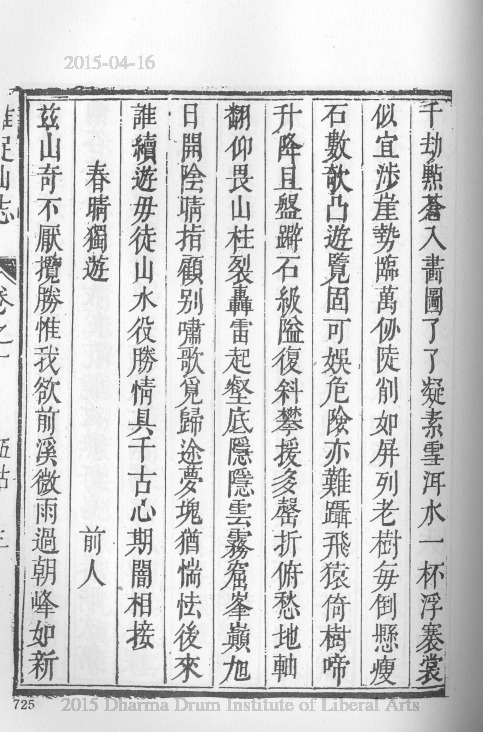 2015-04-16
千劫點蒼入畵圖了了凝素雪洱水一杯浮褰裳
似宜涉崖勢臨萬仞陡削如屏列老樹每倒懸瘦
石數欹凸遊覽固可娛危險亦難躡飛猿倚樹啼
升降且盤蹡石級隘復斜攀援多罄折俯愁地軸
翻仰畏山柱裂轟雷起壑底隱隱雲霧窟峯巔旭
日開陰晴指顧别嘯歌覓歸途夢塊猶惴怯後來
誰續遊毋徒山水役勝情具千古心期闇相接
春晴獨遊
前人
茲山奇不厭攬勝惟我欲前溪微雨過朝峰如新
山志
卷之
三
725
2015 Dharma Drum Institute of Liberal Arts